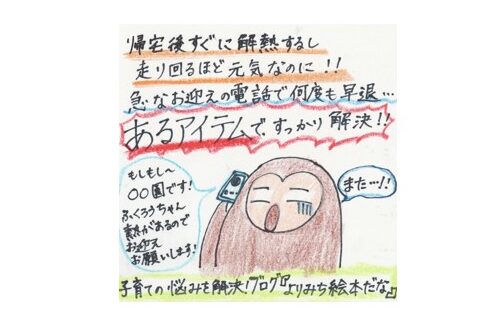 帰宅後すぐに解熱するし
走り回るほど元気なのに!!
急なお迎えの電話で何度も早退…
あるアイテムで、すっかり解決!!
もしもし〜
〇〇園です!
ふくろうちゃん
熱があるので
お迎え
お願いします!
また…!!
子育ての悩みを解決!ブログ『よりみち絵本だな』